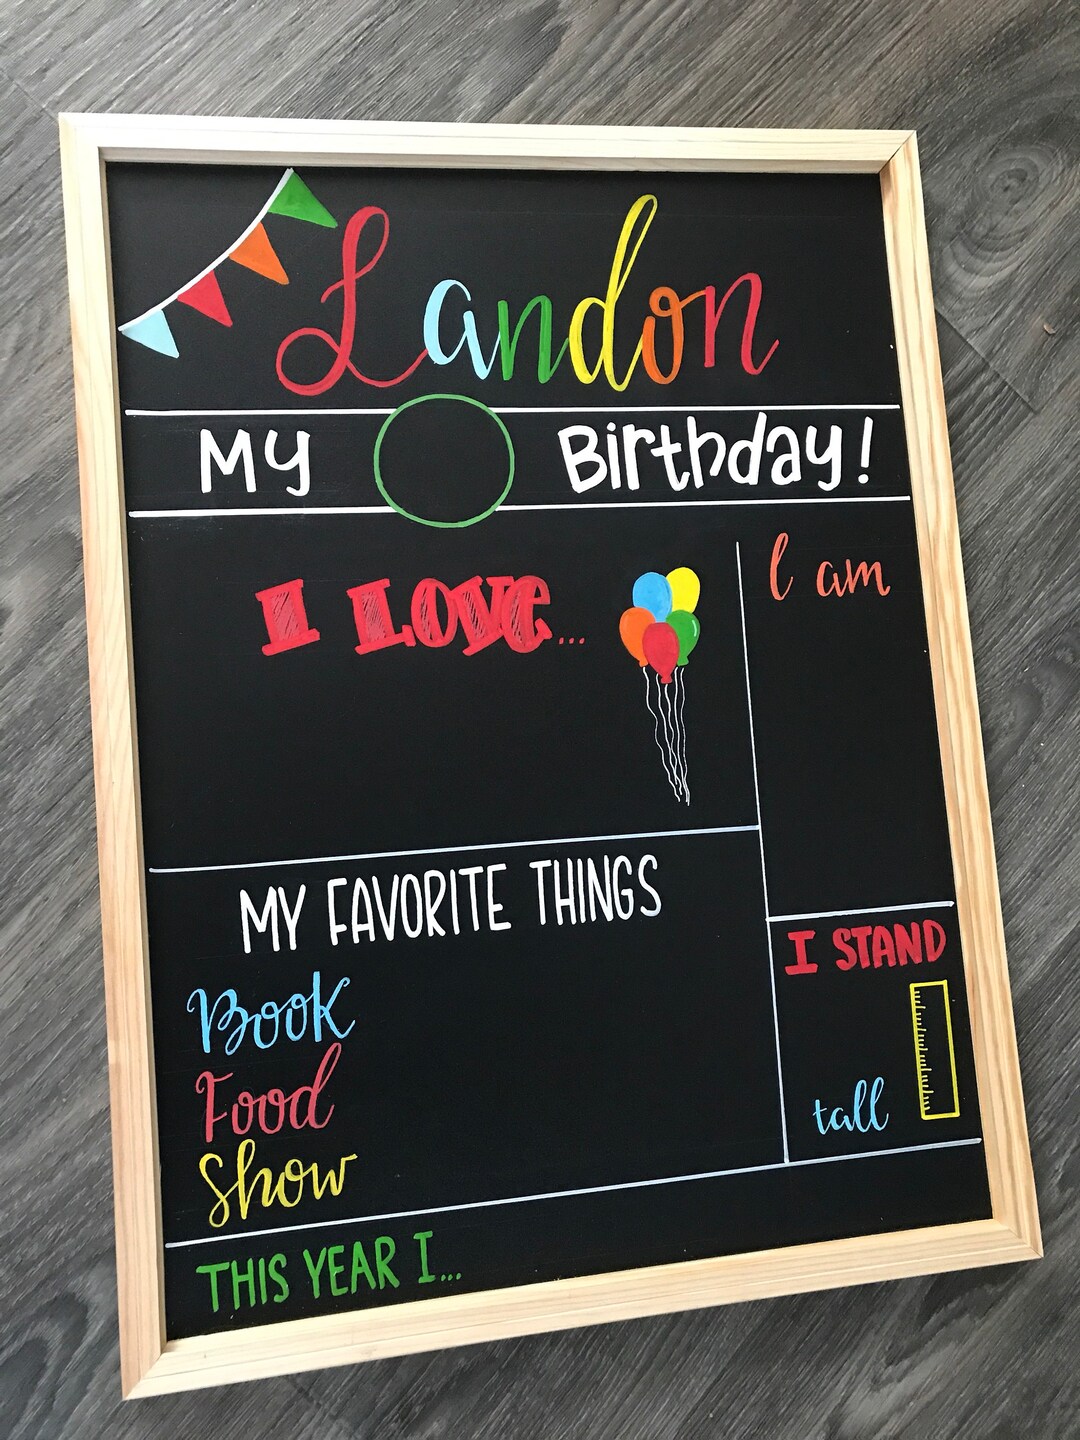 Landon
My Birthday!
I Love...
I am
MY FAVORITE THINGS
Book
Food
Show
I STAND
tall
THIS YEAR I...